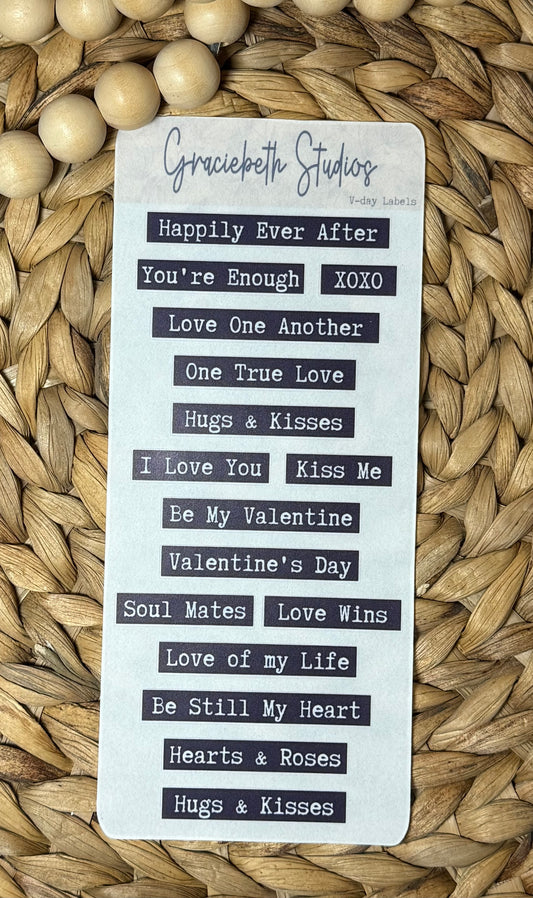 Graciebeth Studios
V-day Labels
Happily Ever After
You're Enough XOXO
Love One Another
One True Love
Hugs & Kisses
I Love You Kiss Me
Be My Valentine
Valentine's Day
Soul Mates Love Wins
Love of my Life
Be Still My Heart
Hearts & Roses
Hugs & Kisses